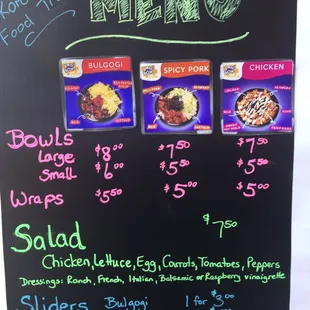 Kor
Food Tr
MENU
BULGOGI
SPICY PORK
CHICKEN
Bowls
Large $8.00 $7.50 $7.50
Small $6.00 $5.50 $5.50
Wraps $5.50 $5.00 $5.00
$7.50
Salad
Chicken, Lettuce, Egg, Carrots, Tomatoes, Peppers
Dressings: Ranch, French, Italian, Balsamic or Raspberry vinaigrette
Sliders Bulgogi 1 for $3.00